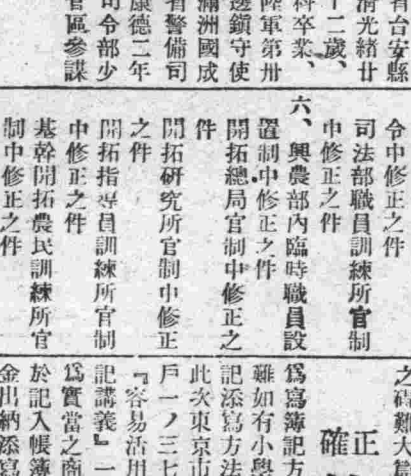 省台安縣
清光緒廿
十二歲、
科卒業、
陸軍第卅
邊鎭守使
滿洲國成
省警備司
康德二年
司令部少
管區參謀
令中修正之件
司法部職員訓練所官制
中修正之件
六、興農部內臨時職員設
置制中修正之件
開拓總局官制中修正之
件
開拓硏究所官制中修正
之件
開拓指導員訓練所官制
中修正之件
基幹開拓農民訓練所官
制中修正之件
正
確
爲寫簿記方
難如有小學
記添寫方法
此次東京市
戶一ノ三七
『容易活用
記講義』一
爲實當之商
於記入帳簿
金出納添寫